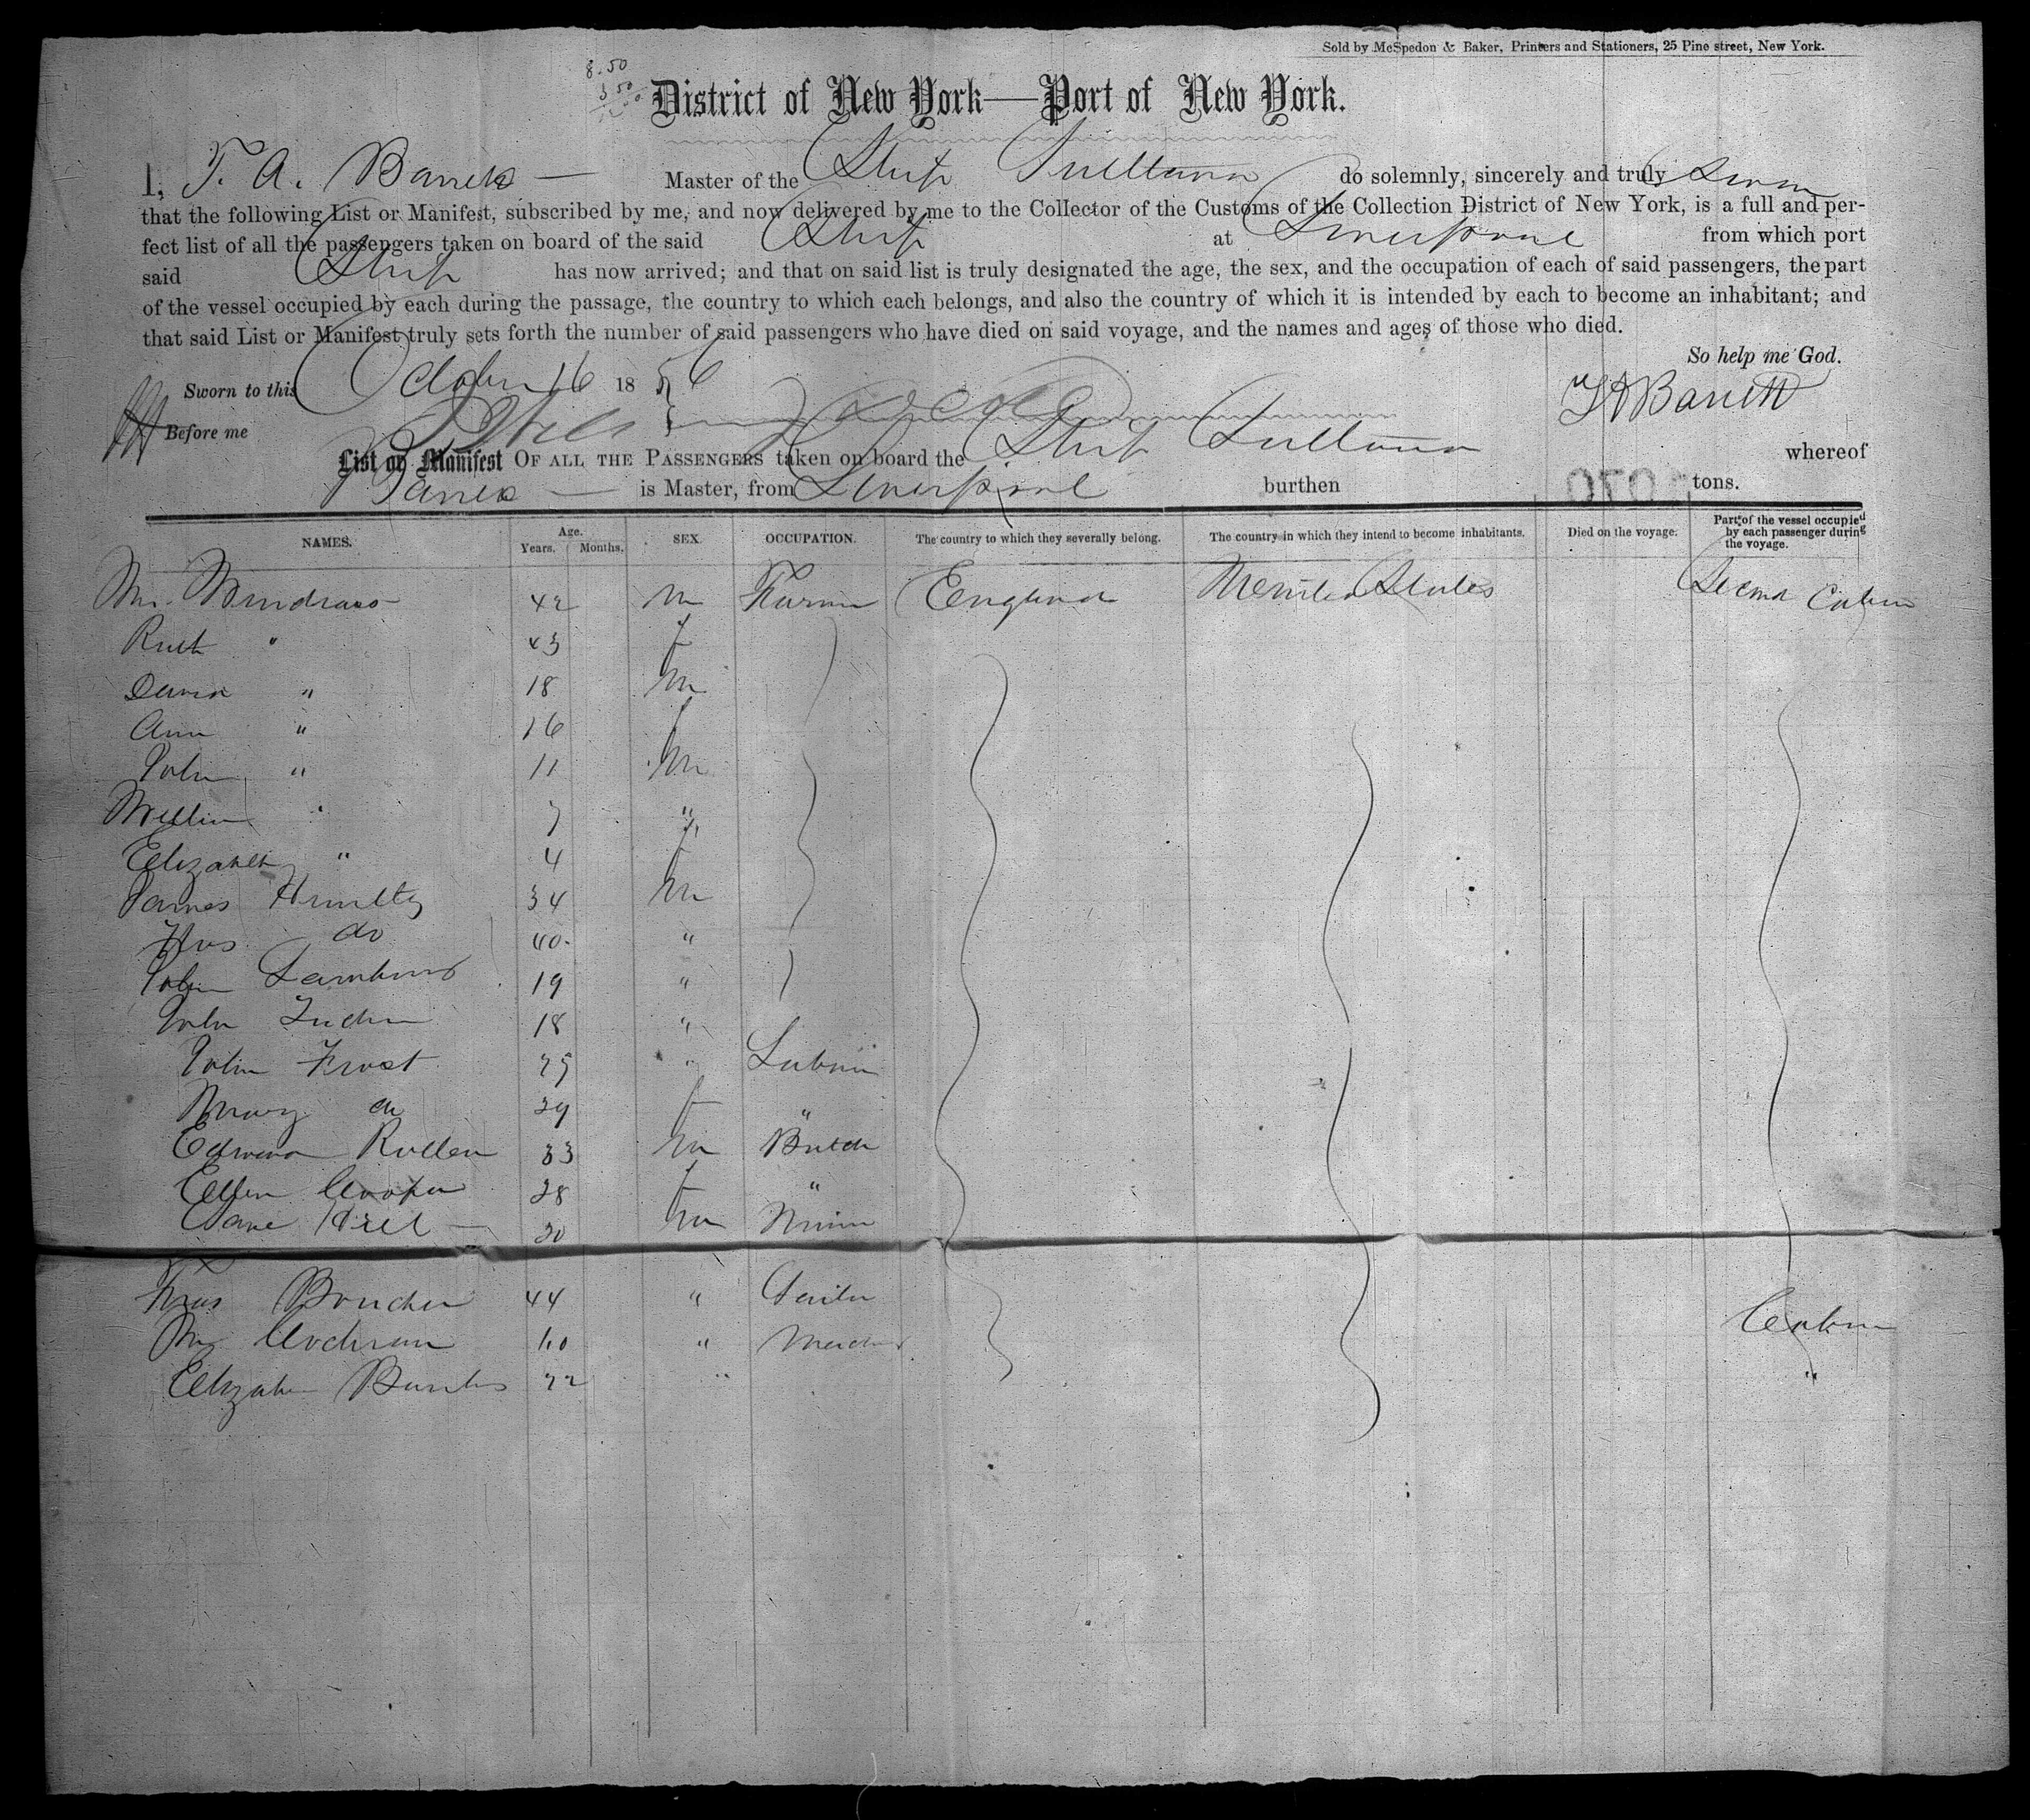 Sold by McSpedon & Baker, Printers and Stationers, 25 Pine street, New York.
8.50
3 50
District of New York—Port of New York.
I, T. A. Barrett — Master of the Ship Sultana do solemnly, sincerely and truly swear
that the following List or Manifest, subscribed by me, and now delivered by me to the Collector of the Customs of the Collection District of New York, is a full and per-
fect list of all the passengers taken on board of the said Ship at Liverpool from which port
said Ship has now arrived; and that on said list is truly designated the age, the sex, and the occupation of each of said passengers, the part
of the vessel occupied by each during the passage, the country to which each belongs, and also the country of which it is intended by each to become an inhabitant; and
that said List or Manifest truly sets forth the number of said passengers who have died on said voyage, and the names and ages of those who died.
So help me God.
Sworn to this October 16 1856 T A Barrett
Before me
List or Manifest OF ALL THE PASSENGERS taken on board the Ship Sultana whereof
Barrett — is Master, from Liverpool burthen tons.
NAMES. Age. Years. Months. SEX. OCCUPATION. The country to which they severally belong. The country in which they intend to become inhabitants. Died on the voyage. Part of the vessel occupied by each passenger during the voyage.
Wm. 42 m Farmer England United States Second Cabin
Ruth " 43 f
David " 18 m
Ann " 16 f
John " 11 m
William " 7 "
Elizabeth " 4 f
James 34 m
do 40 "
John 19 "
John 18 "
John Frost 25 " Labour
Mary do 29 f "
Edward 33 m Butch
Ellen Cooper 28 f "
Jane 20 m
Thos 44 "
Wm Cochran 40 " Merchant Cabin
Elizabeth 22 " "